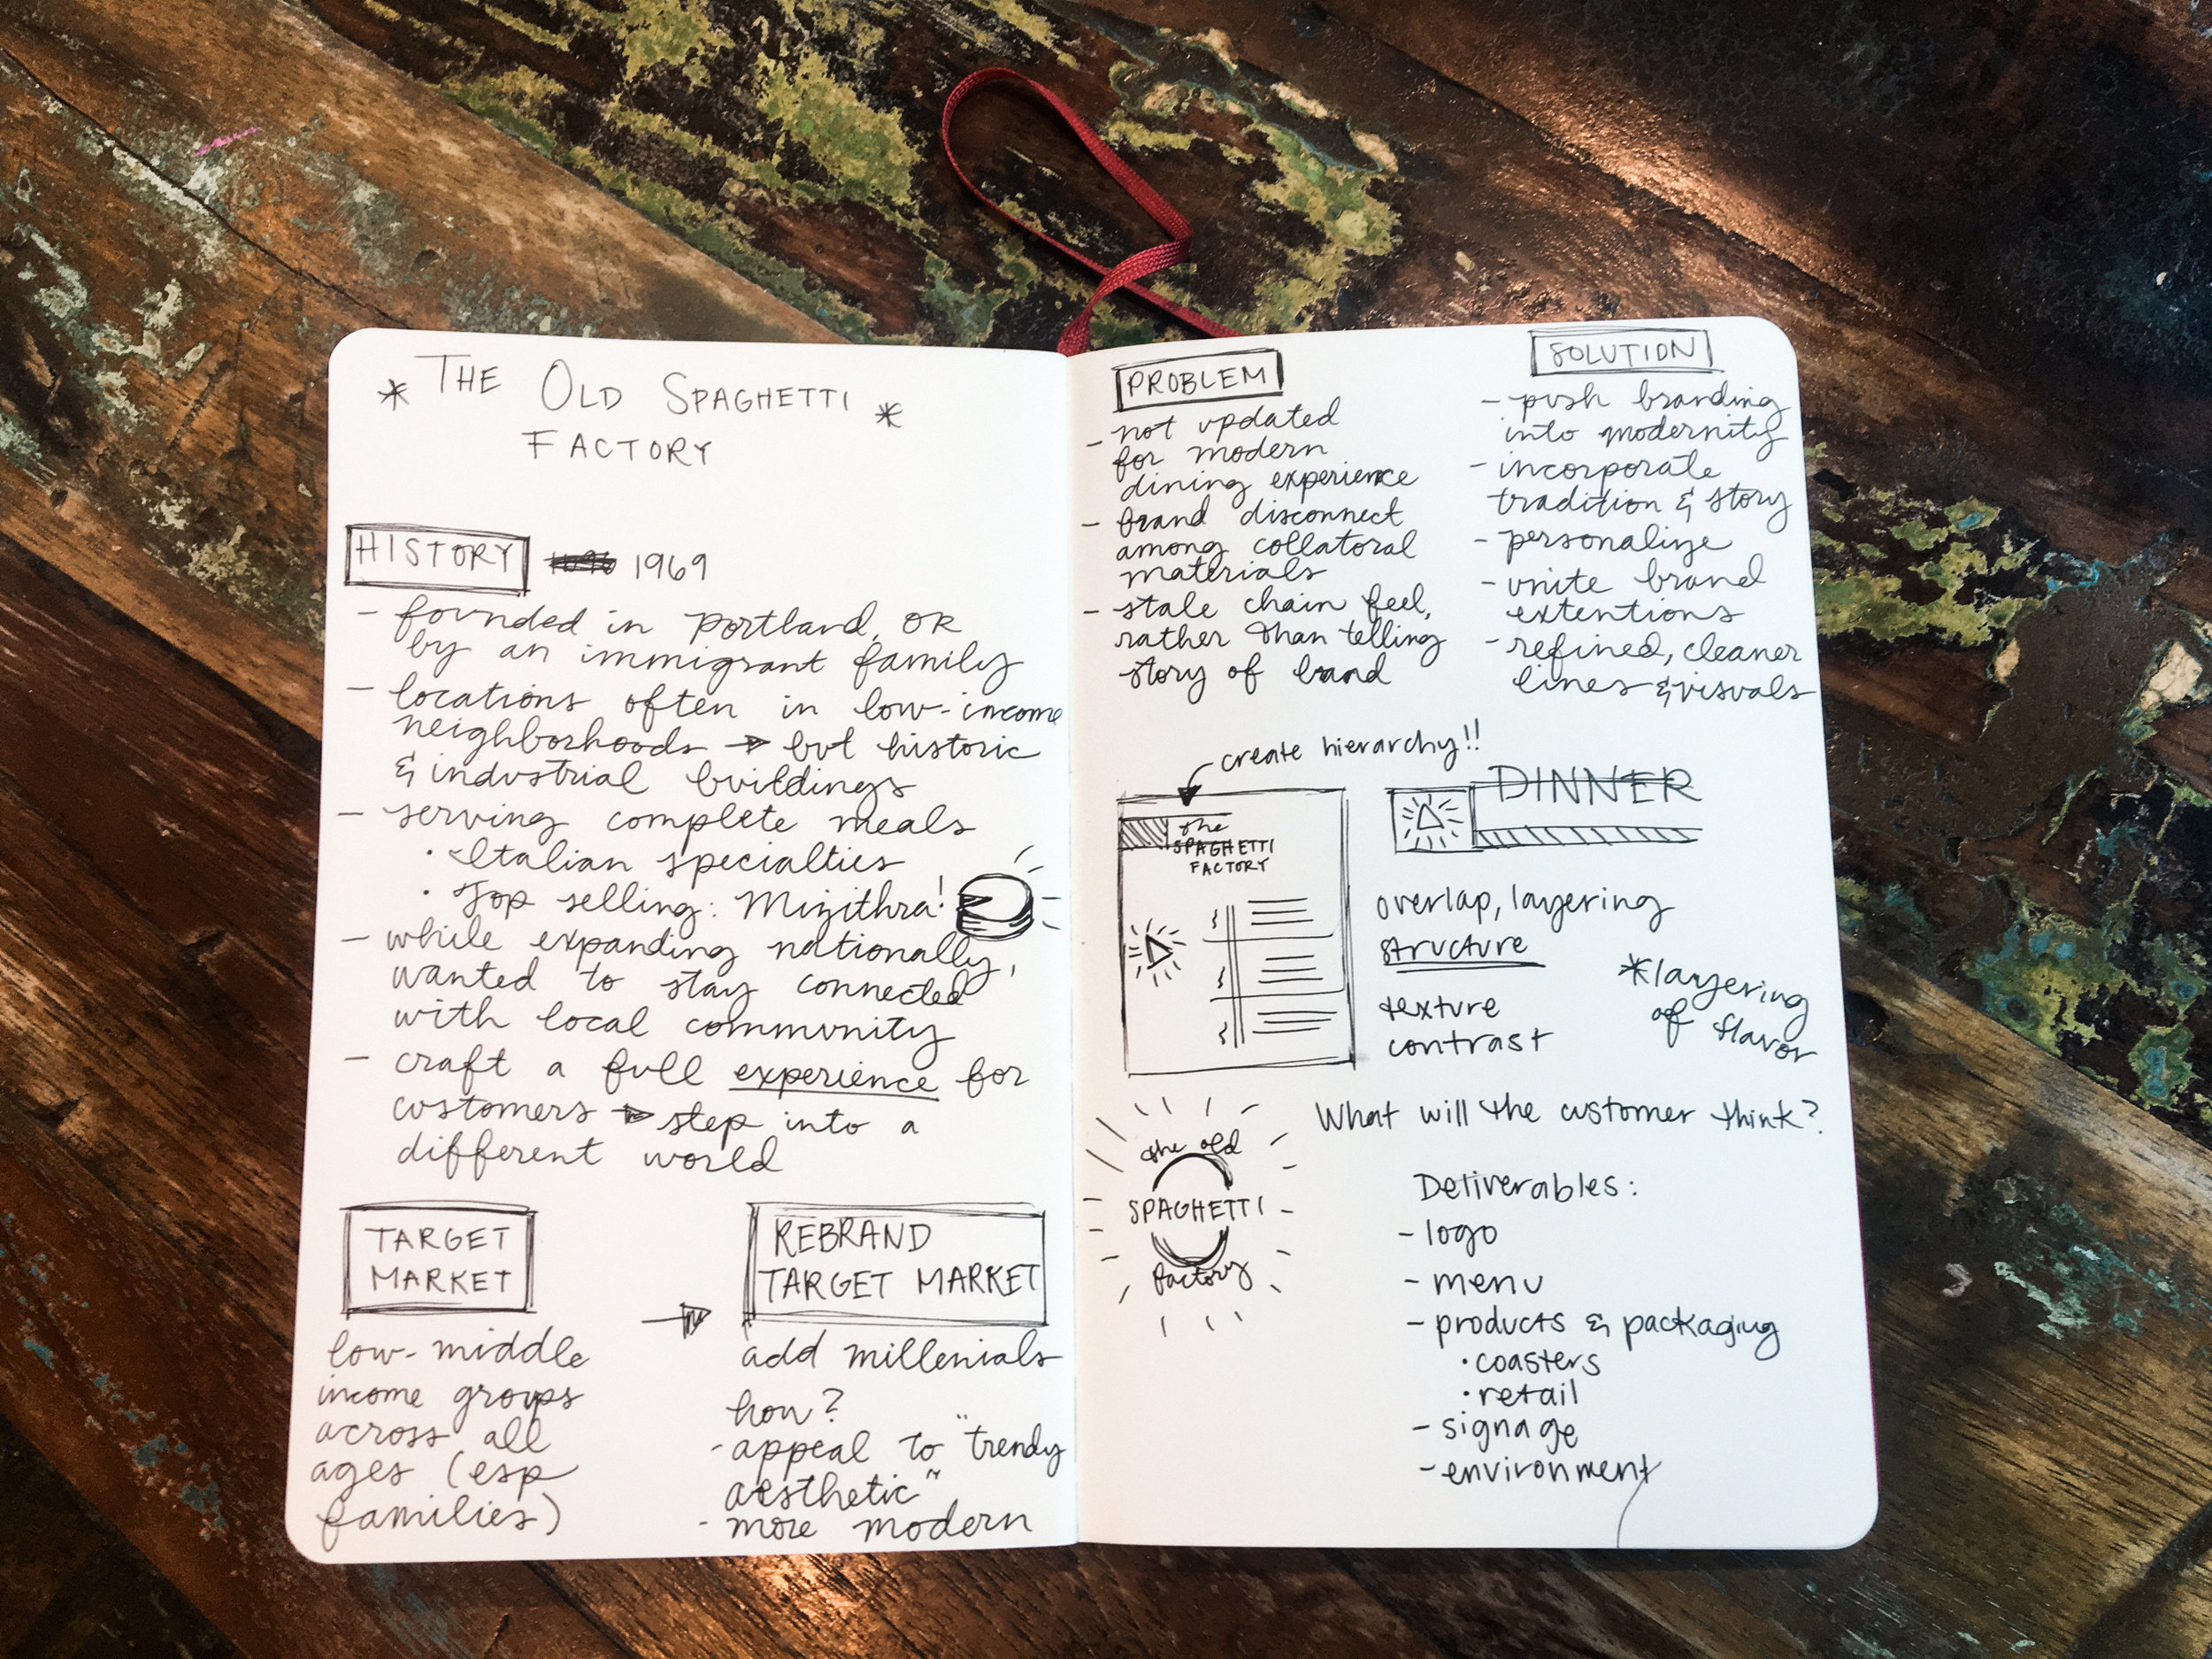 * THE OLD SPAGHETTI *
FACTORY
HISTORY 1969
- founded in portland, OR
by an immigrant family
- locations often in low-income
neighborhoods → but historic
& industrial buildings
- serving complete meals
• Italian specialties
• Top selling: Mizithra!
- while expanding nationally,
wanted to stay connected
with local community
- craft a full experience for
customers → step into a
different world
TARGET
MARKET
low-middle
income groups
across all
ages (esp
families)
→
REBRAND
TARGET MARKET
add millenials
how?
- appeal to "trendy
aesthetic"
- more modern
PROBLEM
- not updated
for modern
dining experience
- brand disconnect
among collatoral
materials
- stale chain feel,
rather than telling
story of brand
SOLUTION
- push branding
into modernity
- incorporate
tradition & story
- personalize
- unite brand
extentions
- refined, cleaner
lines & visuals
create hierarchy!!
the
SPAGHETTI
FACTORY
DINNER
overlap, layering
structure
texture
contrast
*layering
of flavor
the old
SPAGHETTI
factory
What will the customer think?
Deliverables:
- logo
- menu
- products & packaging
• coasters
• retail
- signage
- environment